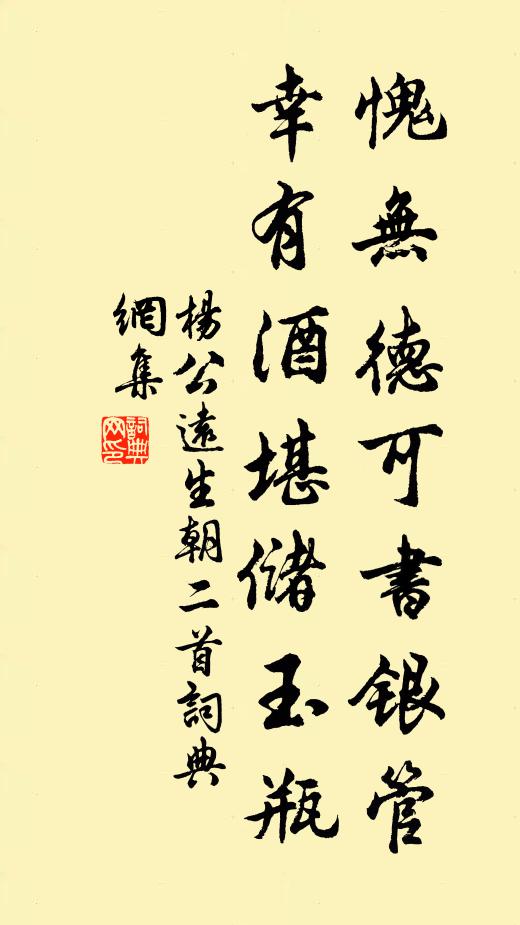 愧無德可書銀管
幸有酒堪儲玉瓶
楊公遠生朝二首詞典
網集
詞典
网印